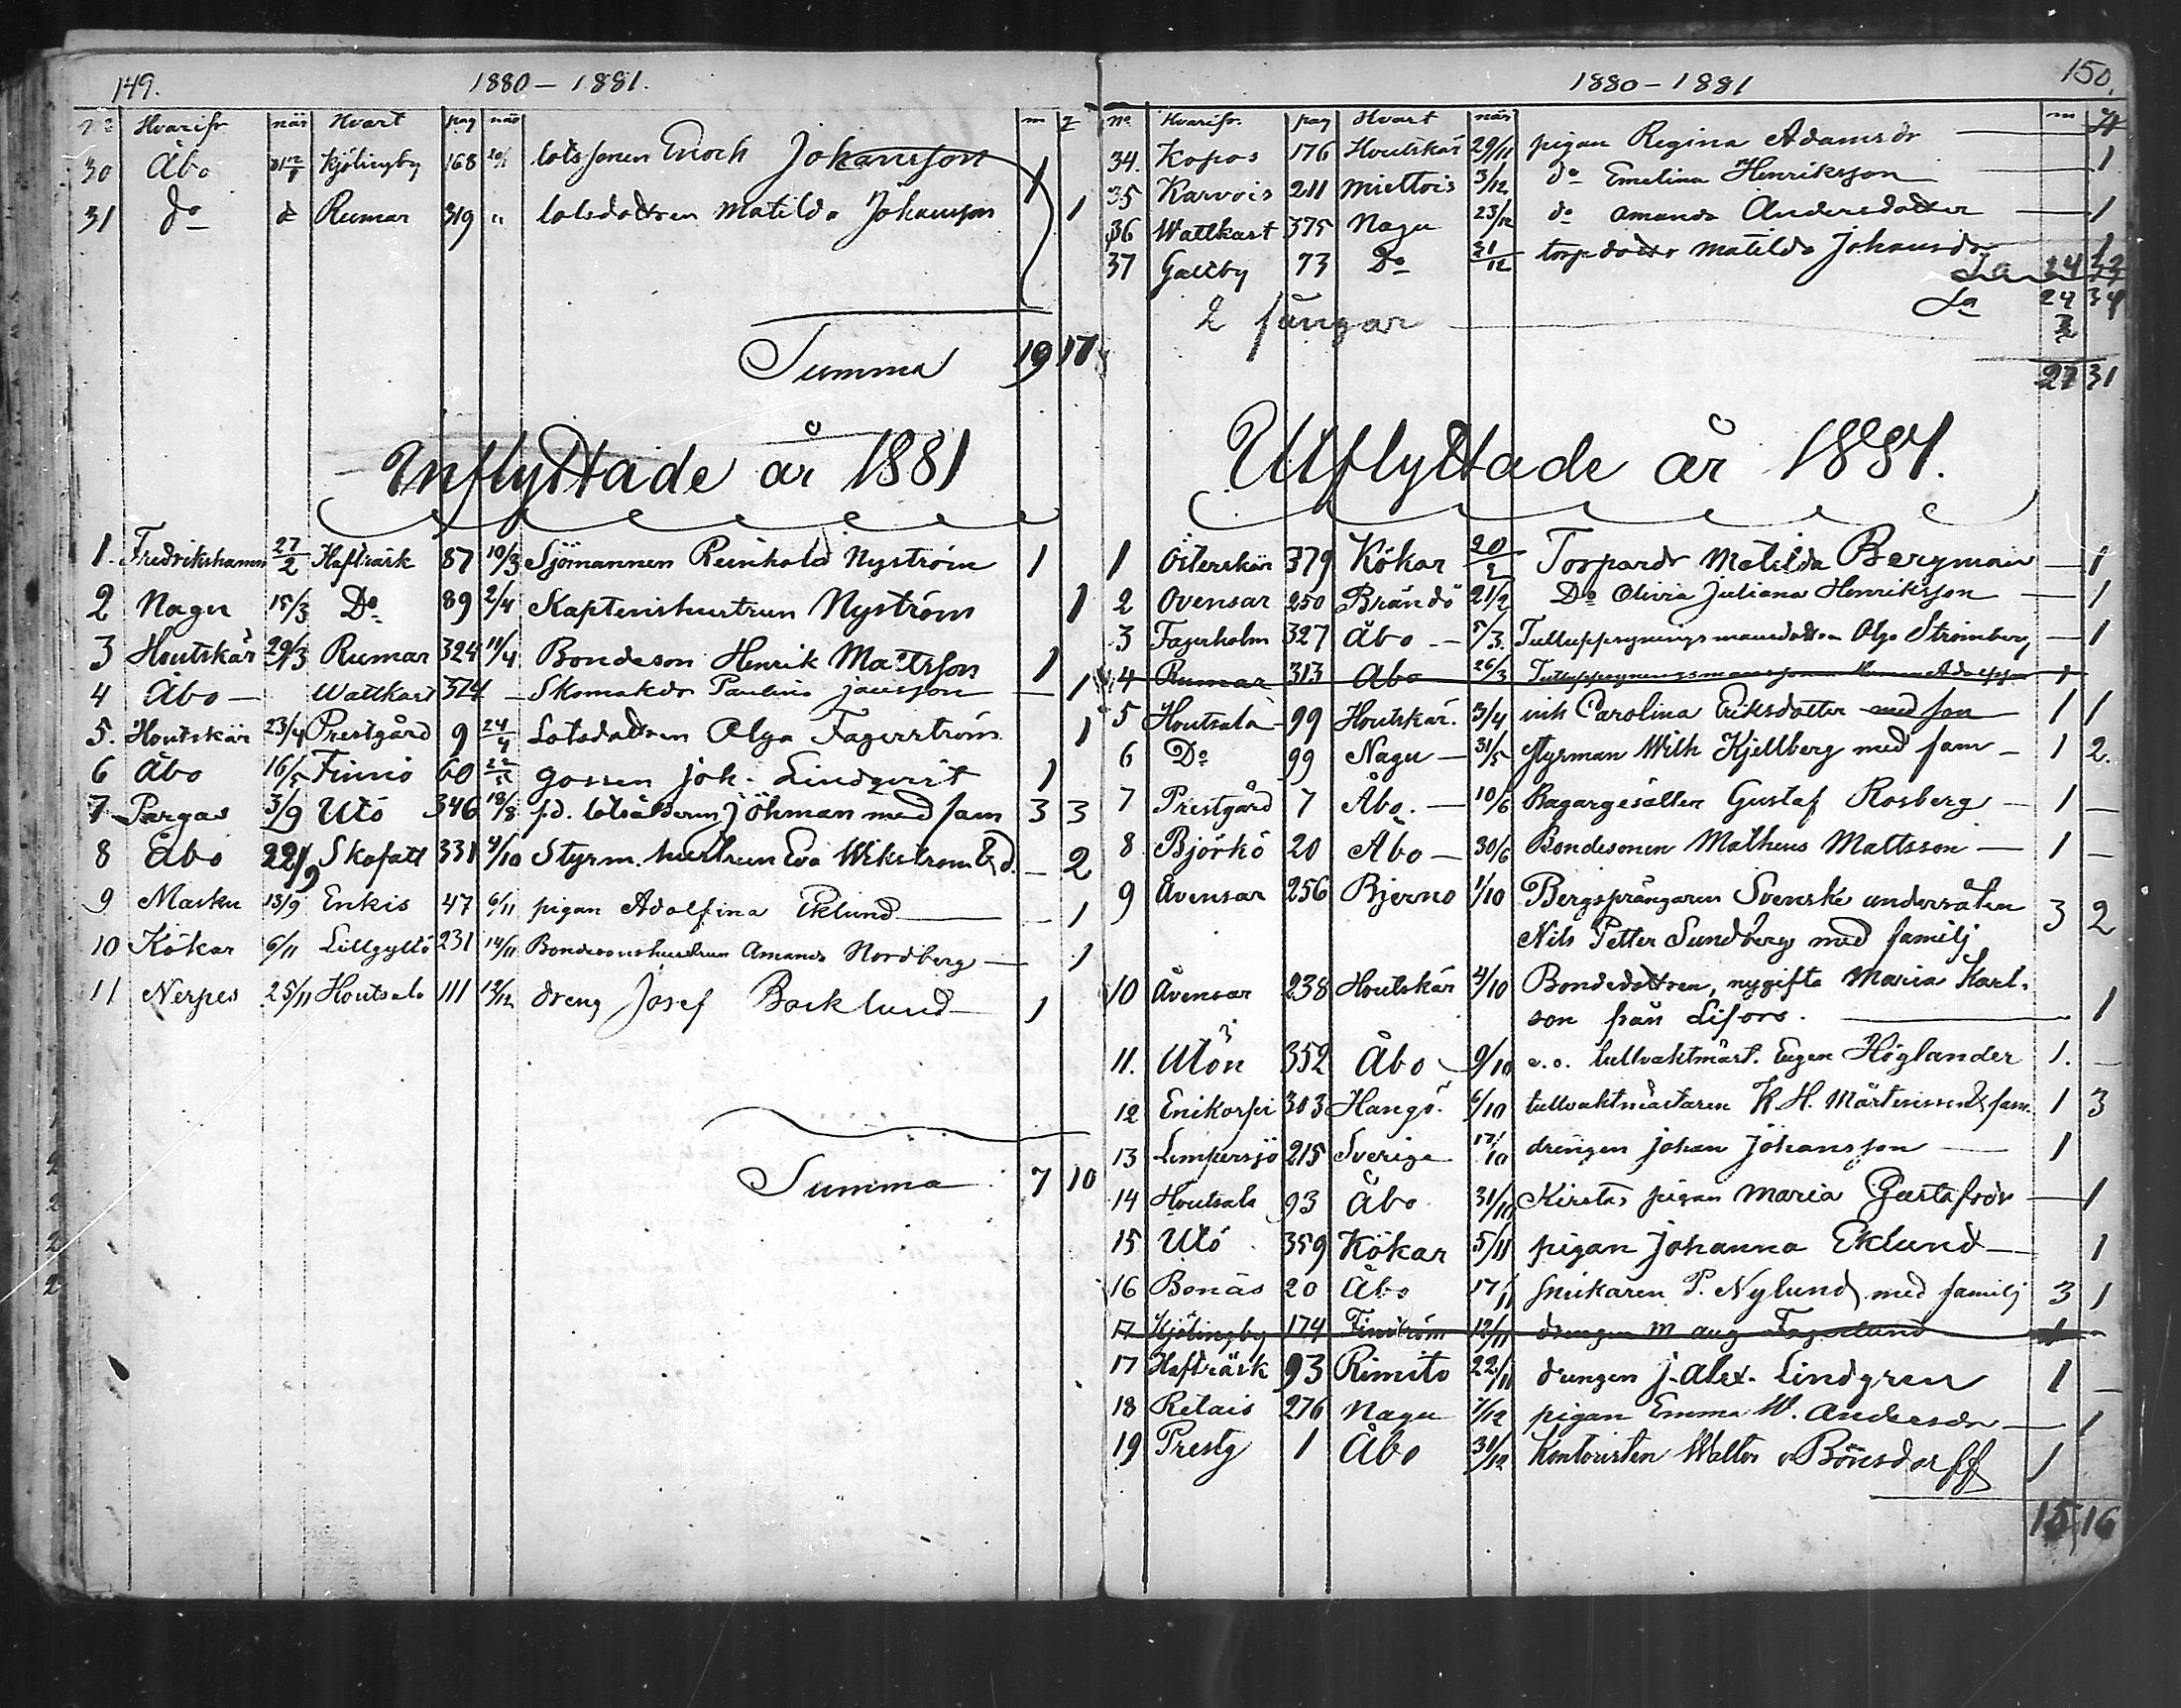 149. 1880 – 1881.
Hvarifr när Hvart pag när m
30 Åbo Kjölingby 168 lotssonen Enoch Johansson 1
31 do d Rumar 319 " lotsdottren Matilda Johansson 1
Summa 19 17
Inflyttade år 1881
1. Fredrikshamn 27/2 Hafträsk 87 10/3 Sjömannen Reinhold Nyström 1
2 Nagu 15/3 Do 89 2/4 Kaptenshustrun Nyström 1
3 Houtskär 29/3 Rumar 324 11/4 Bondeson Henrik Mattsson 1
4 Åbo – Wattkast 374 – Skomakdr Paulina Jansson – 1
5. Houtskär 23/4 Prestgård 9 24/4 Lotsdottren Olga Fagerström 1
6 Åbo 16/5 Finnö 60 gossen Joh. Lindqvist 1
7 Pargas 3/9 Utö 346 18/8 f.d. lotsåldermn J Öhman med fam 3 3
8 Åbo 22/9 Skofatt 331 4/10 Styrm. hustrun Eva Wikstrom & d. – 2
9 Masku 13/9 Enkis 47 6/11 pigan Adolfina Eklund – 1
10 Kökar 6/11 Lillgyltö 231 14/11 Bondesonshustrun Amanda Nordberg – 1
11 Nerpes 25/11 Houtsala 111 12/12 dreng Josef Backlund – 1
Summa 7 10
1880 – 1881 150.
No Hvarifr. pag Hvart när m
34. Kopos 176 Houtskär 29/11 pigan Regina Adamsdr – 1
35 Karvois 211 Miettois 3/12 do Emelina Henriksson – 1
36 Wattkast 375 Nagu 23/12 do Amanda Andersdotter – 1
37 Galtby 73 Do 31/12 torpdottr Matilda Johansdr 1
Sa 24 34
2 fångar
27 31
Utflyttade år 1881.
1 Österskär 379 Kökar 20/2 Torpardr Matilda Bergman – 1
2 Åvensar 250 Brändö 21/2 Do Olivia Juliana Henriksson – 1
3 Fagerholm 327 Åbo – 5/3. Tulluppsyningsmansdottren Olga Strömberg – 1
4 Rumar 313 Åbo 26/3 Tulluppsyningsmanssonen Adolfsson 1
5 Houtsala 99 Houtskär. 3/4 inh Carolina Eriksdotter med son 1 1
6 Do 99 Nagu – 31/5 styrman Wilh Kjellberg med fam – 1 2.
7 Prestgård 7 Åbo. – 10/6 Bagargesällen Gustaf Rosberg – 1 –
8 Björkö 20 Åbo – 30/6 Bondesonen Matheus Mattsson – 1 –
9 Åvensar 256 Bjerno 1/10 Bergsprängaren Svenske undersåten
Nils Petter Sundberg med familj 3 2
10 Åvensar 238 Houtskär 4/10 Bondedottren, nygifta Maria Karl-
son från Lifors. – 1
11. Utön 352 Åbo 9/10 e.o. tullvaktmäst. Eugen Höglander 1. –
12 Enikorpi 303 Hangö. 6/10 tullvaktmästaren K.H. Mårtenson & fam. 1 3
13 Lempersjö 215 Sverige 17/10 drengen Johan Johansson – 1
14 Houtsala 93 Åbo 31/10 pigan Maria Gustafsdr – 1
15 Utö 359 Kökar 5/11 pigan Johanna Eklund – 1
16 Bonäs 20 Åbo 17/11 snickaren P. Nylund med familj 3 1
17 Kjölingby 174 Finström 12/11 drengen M Aug Fagerlund 1 –
17 Hafträsk 93 Rimito 22/11 drengen J. Alex. Lindgren 1 –
18 Retais 276 Nagu 7/12 pigan Emma W. Andersdr – 1
19 Prestg 1 Åbo 31/12 Kontoristen Walter v Bonsdorff 1
15 16